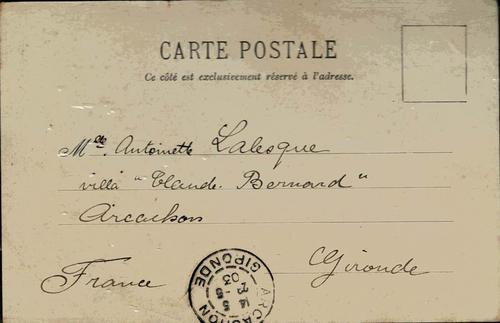 CARTE POSTALE
Ce côté est exclusivement réservé à l'adresse.
Mlle. Antoinette Lalesque
villa "Claude. Bernard"
Arcachon
Gironde
France
ARCACHON
GIRONDE
14 5
03